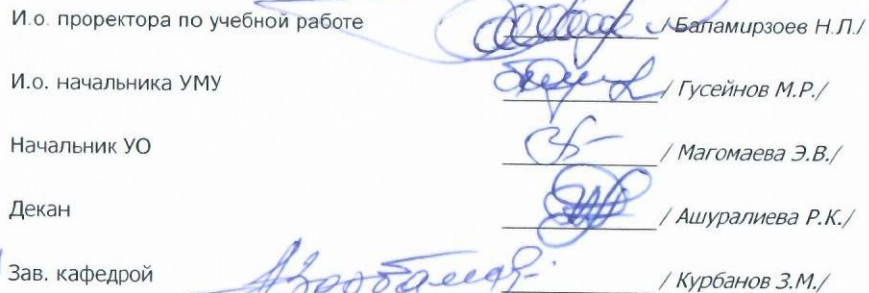 И.о. проректора по учебной работе / Баламирзоев Н.Л./
И.о. начальника УМУ / Гусейнов М.Р./
Начальник УО / Магомаева Э.В./
Декан / Ашуралиева Р.К./
Зав. кафедрой / Курбанов З.М./